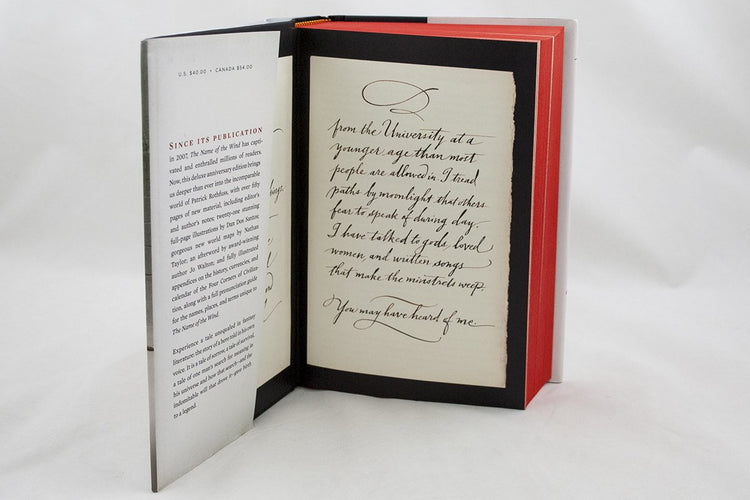 U.S. $40.00 • CANADA $54.00
SINCE ITS PUBLICATION
in 2007, The Name of the Wind has capti-
vated and enthralled millions of readers.
Now, this deluxe anniversary edition brings
us deeper than ever into the incomparable
world of Patrick Rothfuss, with over fifty
pages of new material, including editor's
and author's notes; twenty-one stunning
full-page illustrations by Dan Dos Santos;
gorgeous new world maps by Nathan
Taylor; an afterword by award-winning
author Jo Walton; and fully illustrated
appendices on the history, currencies, and
calendar of the Four Corners of Civiliza-
tion, along with a full pronunciation guide
for the names, places, and terms unique to
The Name of the Wind.
Experience a tale unequaled in fantasy
literature: the story of a hero told in his own
voice. It is a tale of sorrow, a tale of survival,
a tale of one man's search for meaning in
his universe and how that search—and the
indomitable will that drove it—gave birth
to a legend.
from the University at a
younger age than most
people are allowed in. I tread
paths by moonlight that others
fear to speak of during day.
I have talked to gods, loved
women, and written songs
that make the minstrels weep.
You may have heard of me